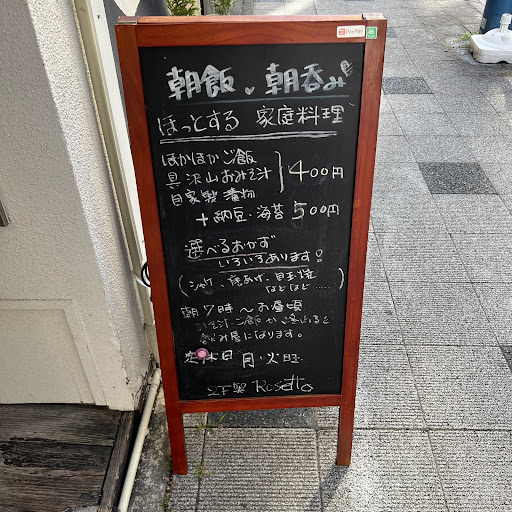 PayPay
朝飯、朝呑み
ほっとする 家庭料理
ほかほかご飯
具沢山おみそ汁
自家製漬物
400円
+納豆・海苔 500円
選べるおかず
いろいろあります!
(シャケ、焼あげ、目玉焼
などなど……)
朝7時〜お昼頃
みそ汁・ご飯が
飲み屋になります。
定休日 月・火曜
2F奥 Rosetta